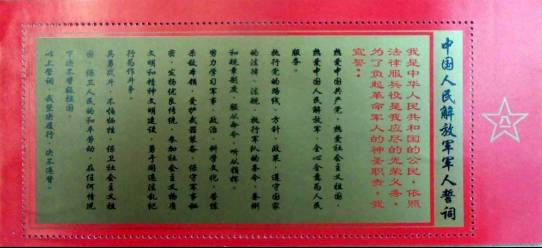 中国人民解放军军人誓词
我是中华人民共和国的公民，依照
法律服兵役是我应尽的光荣义务。
为了负起革命军人的神圣职责，我
宣誓：
热爱中国共产党，热爱社会主义祖国，
热爱中国人民解放军，全心全意为人民
服务。
执行党的路线、方针、政策，遵守国家
的法律、法规，执行军队的条令、条例
和规章制度，服从命令，听从指挥。
努力学习军事、政治、科学文化，苦练
杀敌本领，爱护武器装备，保守军事秘
密，发扬优良传统，参加社会主义物质
文明和精神文明建设，勇于同违法乱纪
行为作斗争。
英勇战斗，不怕牺牲，保卫社会主义祖
国，保卫人民的和平劳动，在任何情况
下决不背叛祖国。
以上誓词，我坚决履行，决不违背。
八一